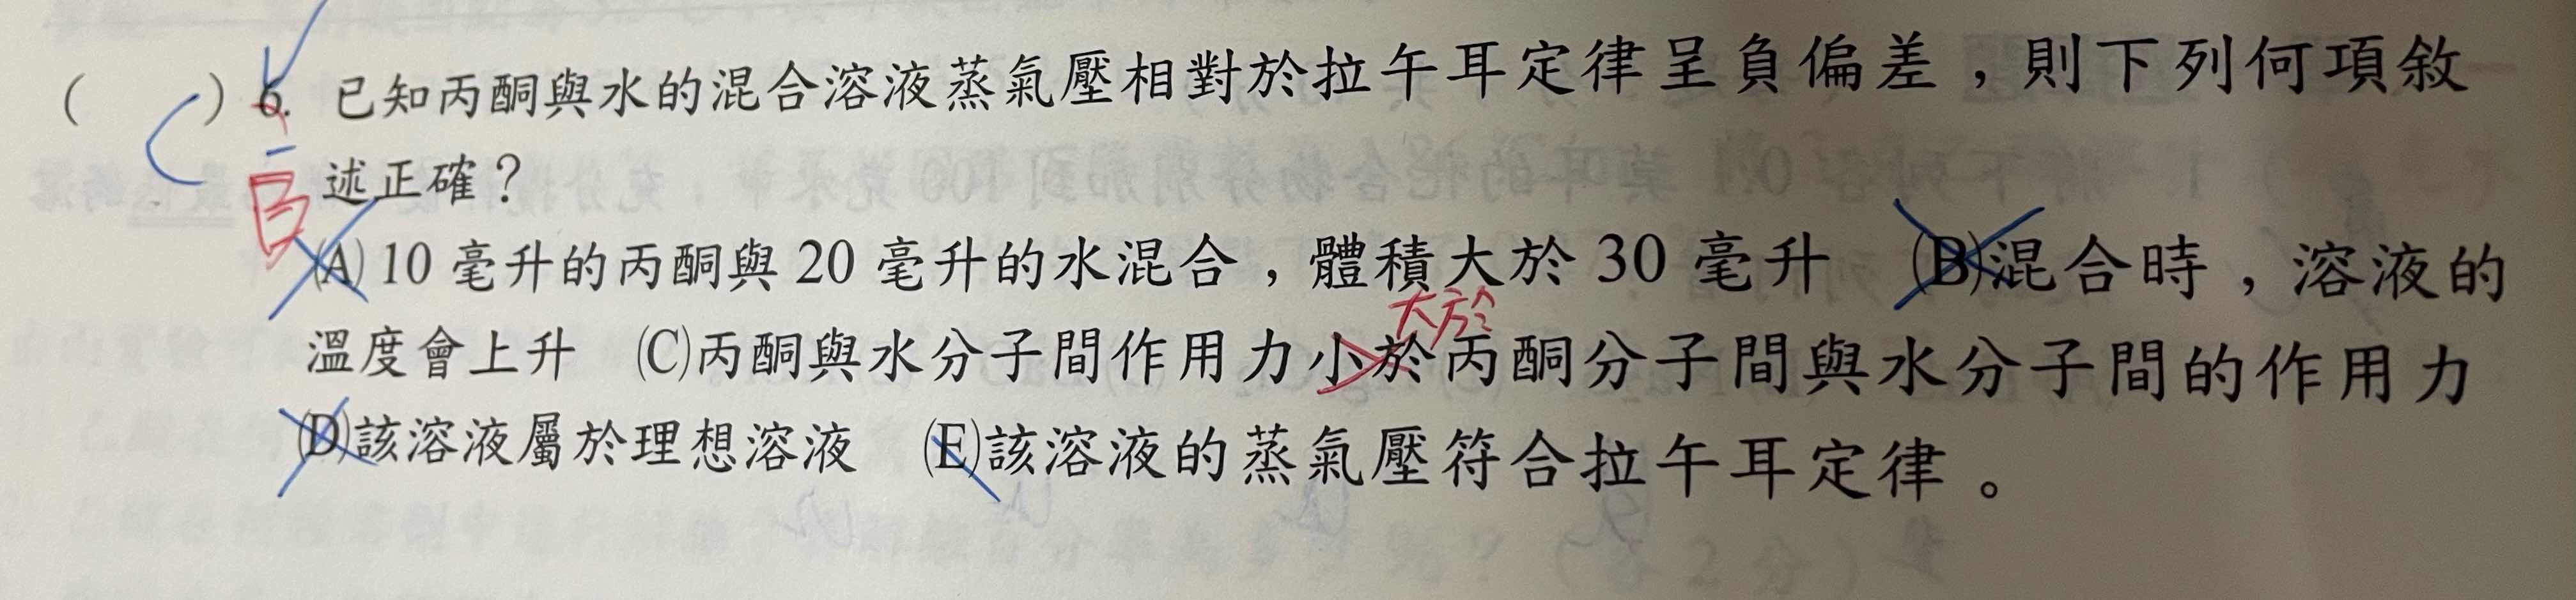 ( C ) 6. 已知丙酮與水的混合溶液蒸氣壓相對於拉午耳定律呈負偏差，則下列何項敘
B 述正確？
(A) 10 毫升的丙酮與 20 毫升的水混合，體積大於 30 毫升 (B)混合時，溶液的
大於
溫度會上升 (C)丙酮與水分子間作用力小於丙酮分子間與水分子間的作用力
(D)該溶液屬於理想溶液 (E)該溶液的蒸氣壓符合拉午耳定律。